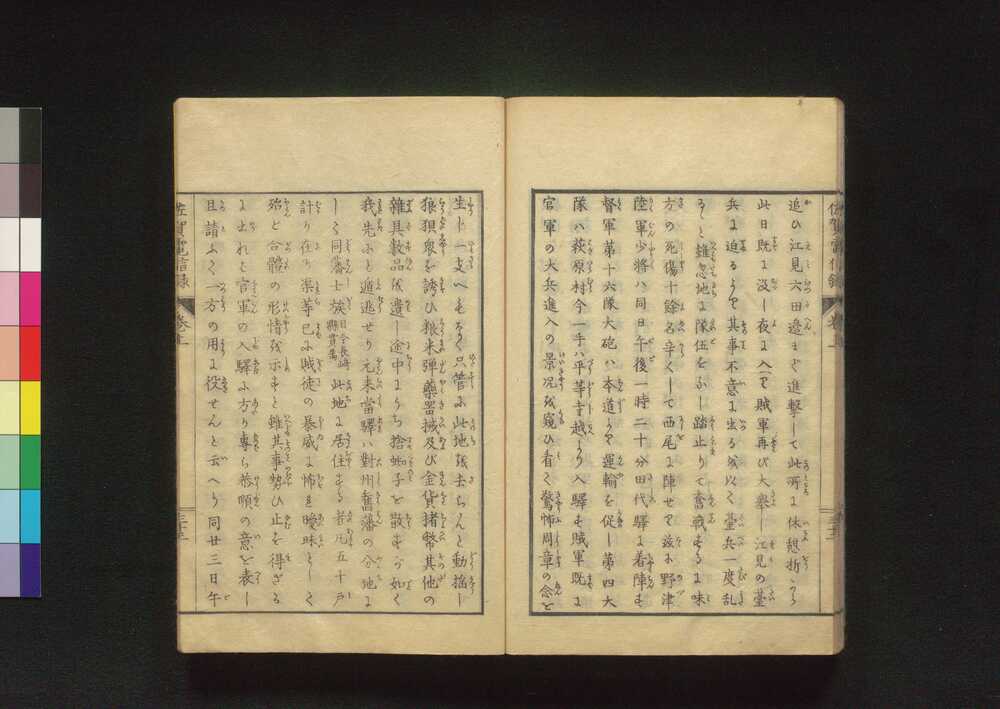 追ひ江見六田邉まで進撃して此所に休憩折から
此日既に没し夜に入て賊軍再び大擧し江見の臺
兵に迫るうへ其事不意に出るを以て臺兵一度乱
ると雖忽地に隊伍をなし踏止りて奮戦するに味
方の死傷十餘名辛くして西尾に陣せり茲に野津
陸軍少將ハ同日午後一時二十分田代驛に着陣す
督軍第十六隊大砲ハ本道より運輸を促し第四大
隊ハ萩原村今一手ハ平等寺越より入驛す賊軍既に
官軍の大兵進入の景况を窺ひ看て驚怖周章の念を
生じ一支へもなく只管に此地を去らんと動揺し
狼狽衆を誘ひ粮米彈藥器械及び金貨楮幣其他の
雜具數品を遺し途中にうち捨蜘子を散すが如く
我先にと遁逃せり元来當驛ハ對州舊藩の分地に
しる同藩士族目今長崎縣貫属此地に居住する者凡五十戸
計り在り渠等已に賊徒の暴威に怖れ曖昧として
殆ど合體の形情を示すと雖其事勢ひ止を得ざる
に出れと官軍の入驛に方り專ら恭順の意を表し
且請ふて一方の用に役せんと云へり同廿三日午
佐賀電信録
卷上